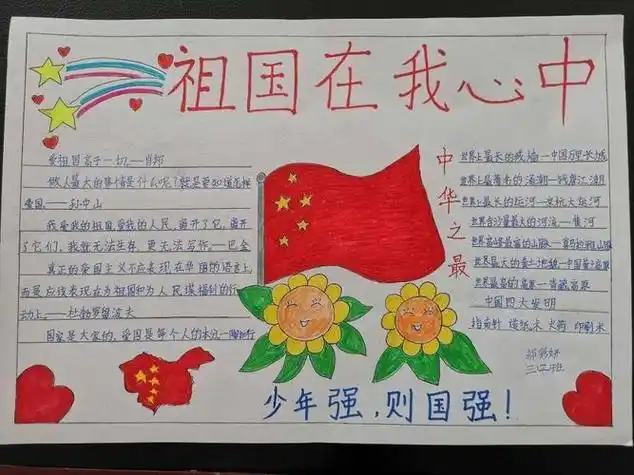 祖国在我心中
爱祖国高于一切——肖邦
做人最大的事情是什么呢?就是要知道怎样
爱国——孙中山
我爱我的祖国,爱我的人民,离开了它,离开
了它们,我就无法生存,更无法写作。——巴金
真正的爱国主义不应表现在华丽的语言上,
而是应该表现在为祖国和为人民谋福利的行
动上。——杜勃罗留波夫
国家是大家的,爱国是每个人的本分——陶行
中华之最
世界上最长的城墙——中国万里长城
世界上最著名的涌潮——钱唐江潮
世界上最长的运河——京杭大运河
世界含沙量最大的河流——黄河
世界最大的黄土地貌——中国黄土高原
世界最高的高原——青藏高原
中国四大发明
指南针 造纸术 火药 印刷术
三(2)班
少年强,则国强!